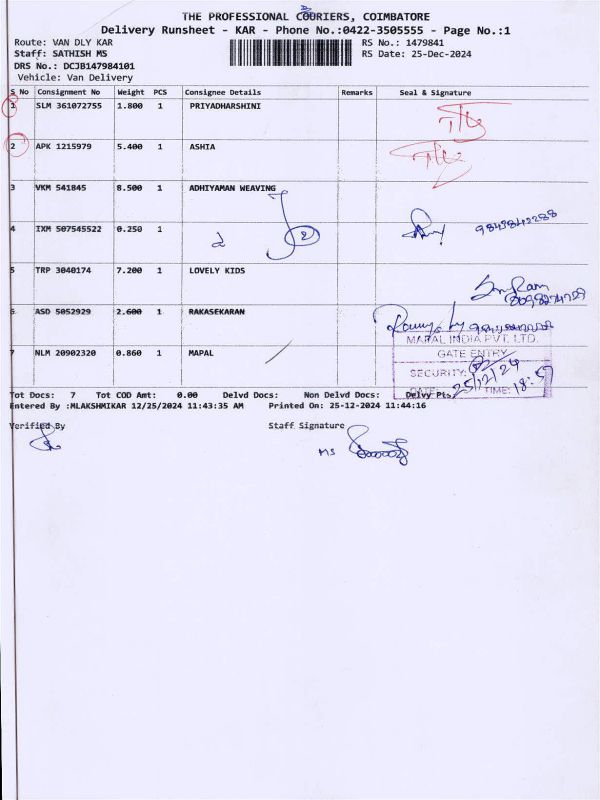 THE PROFESSIONAL COURIERS, COIMBATORE
Delivery Runsheet - KAR - Phone No.:0422-3505555 - Page No.:1
Route: VAN DLY KAR
RS No.: 1479841
Staff: SATHISH MS
RS Date: 25-Dec-2024
DRS No.: DCJB147984101
Vehicle: Van Delivery
S No Consignment No Weight PCS Consignee Details Remarks Seal & Signature
1 SLM 361072755 1.800 1 PRIYADHARSHINI
2 APK 1215979 5.400 1 ASHIA
3 VKM 541845 8.500 1 ADHIYAMAN WEAVING
4 IXM 507545522 0.250 1
2
5 TRP 3040174 7.200 1 LOVELY KIDS
6 ASD 5052929 2.600 1 RAKASEKARAN
7 NLM 20902320 0.860 1 MAPAL
MAPAL INDIA PVT. LTD.
GATE ENTRY
SECURITY:
DATE: 25/12/24 TIME: 18:57
Tot Docs: 7 Tot COD Amt: 0.00 Delvd Docs: Non Delvd Docs: Delvy Pts
Entered By :MLAKSHMIKAR 12/25/2024 11:43:35 AM Printed On: 25-12-2024 11:44:16
Verified By
Staff Signature
MS